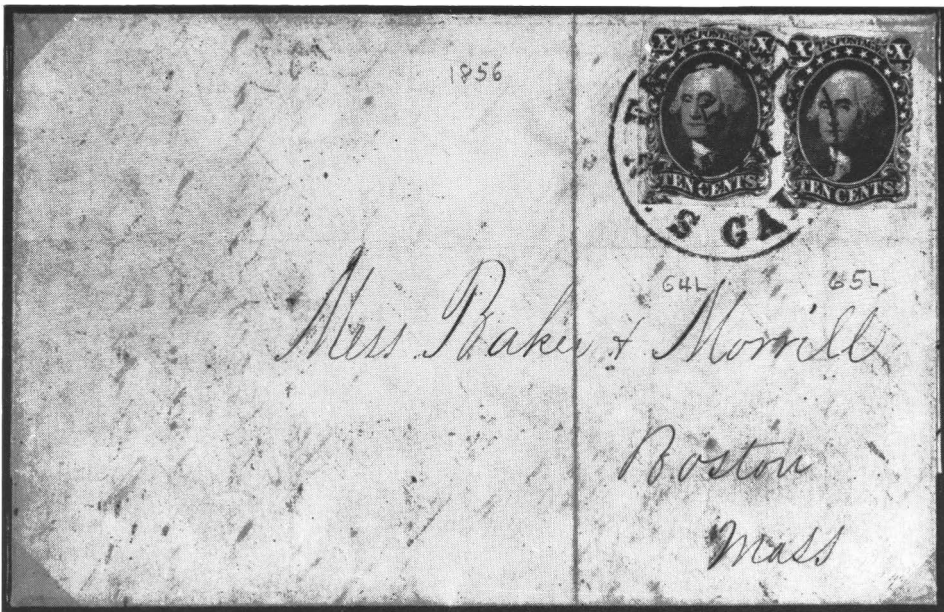 1856
X U.S. POSTAGE X X U.S. POSTAGE X
TEN CENTS TEN CENTS
64L 65L
Mess Baker & Morrill
Boston
Mass